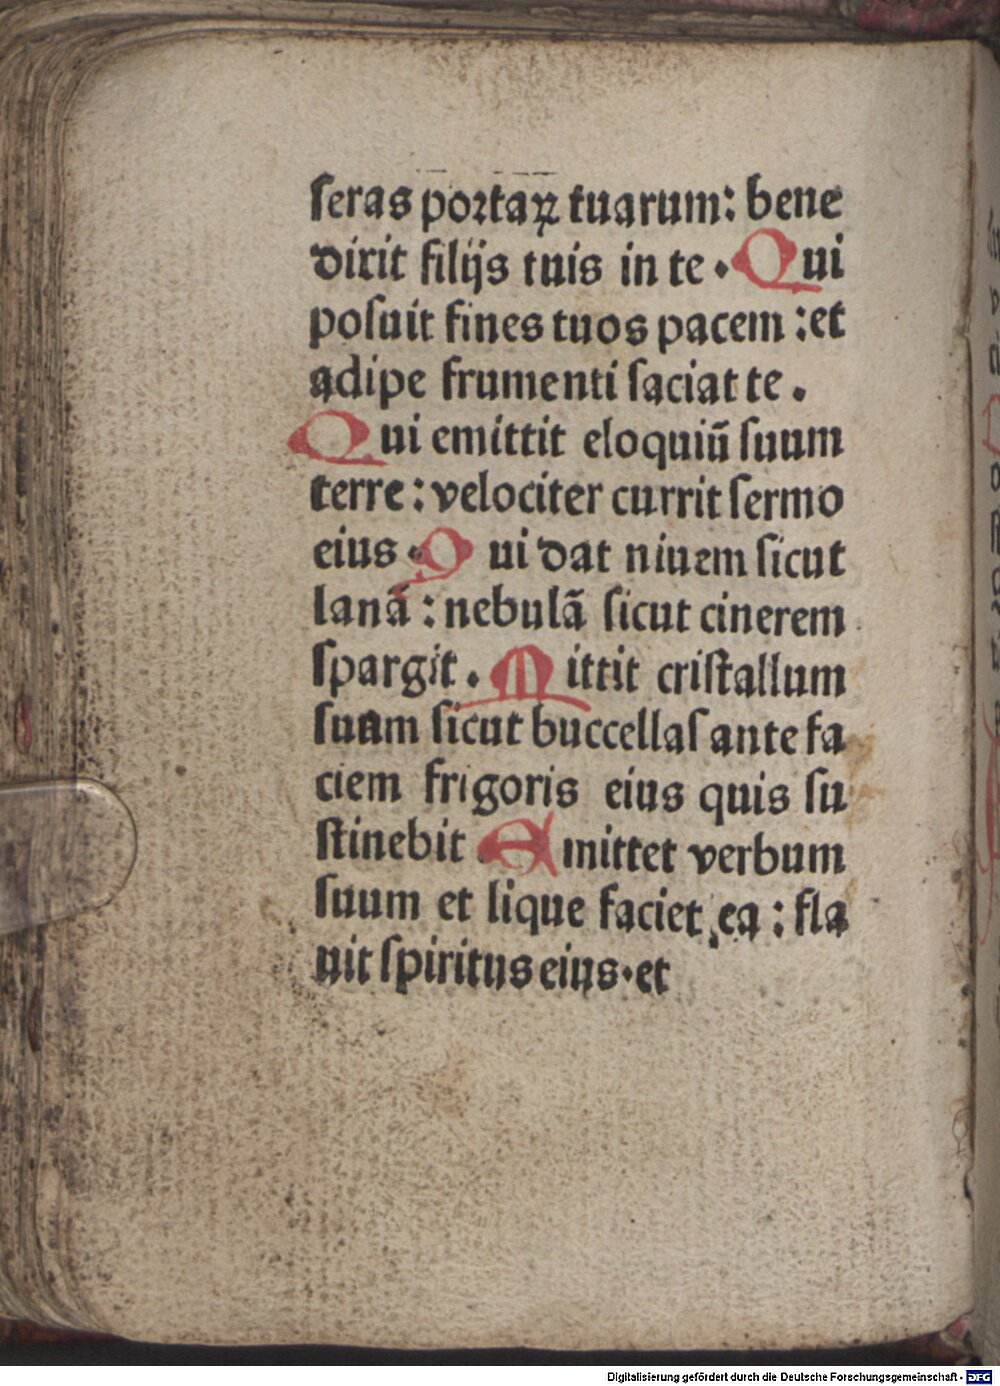 ſeras portaꝝ tuarum: bene
dixit filijs tuis in te. Qui
poſuit fines tuos pacem :et
adipe frumenti ſaciat te.
Qui emittit eloquiū ſuum
terre: velociter currit ſermo
eius. Qui dat niuem ſicut
lanā : nebulā ſicut cinerem
ſpargit. Mittit criſtallum
ſuum ſicut buccellaſ ante fa
ciem frigoris eius quis ſu
ſtinebit. Emittet verbum
ſuum et lique faciet ea : fla
uit ſpiritus eius·et
Digitalisierung gefördert durch die Deutsche Forschungsgemeinschaft - DFG